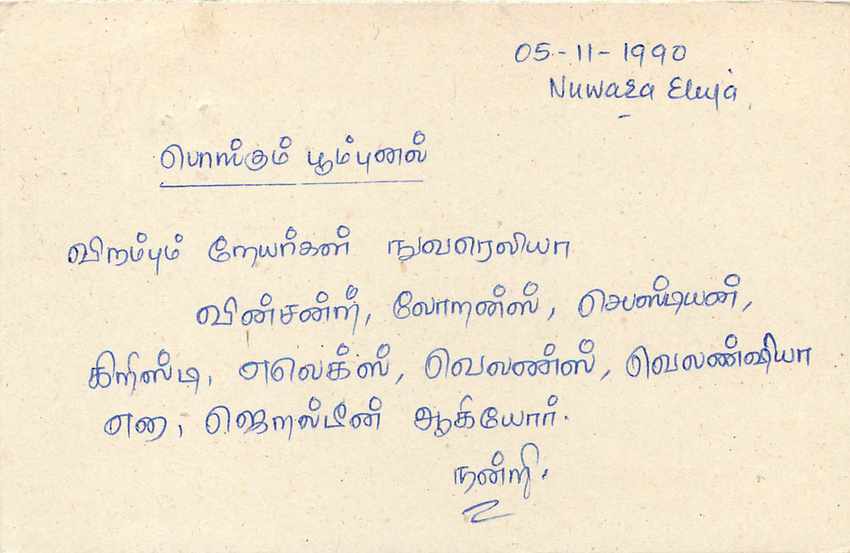 05-11-1990
Nuwara Eliya
பொங்கும் பூம்புனல்
விரம்பும் நேயர்கள் நுவரெலியா
வின்சன்ற், லோறன்ஸ், செபஸ்டியன்,
கிறிஸ்டி, எலெக்ஸ், வெலண்ஸ், வெலண்ஷியா
ஜெறல்மீன் ஆகியோர்.
நன்றி.